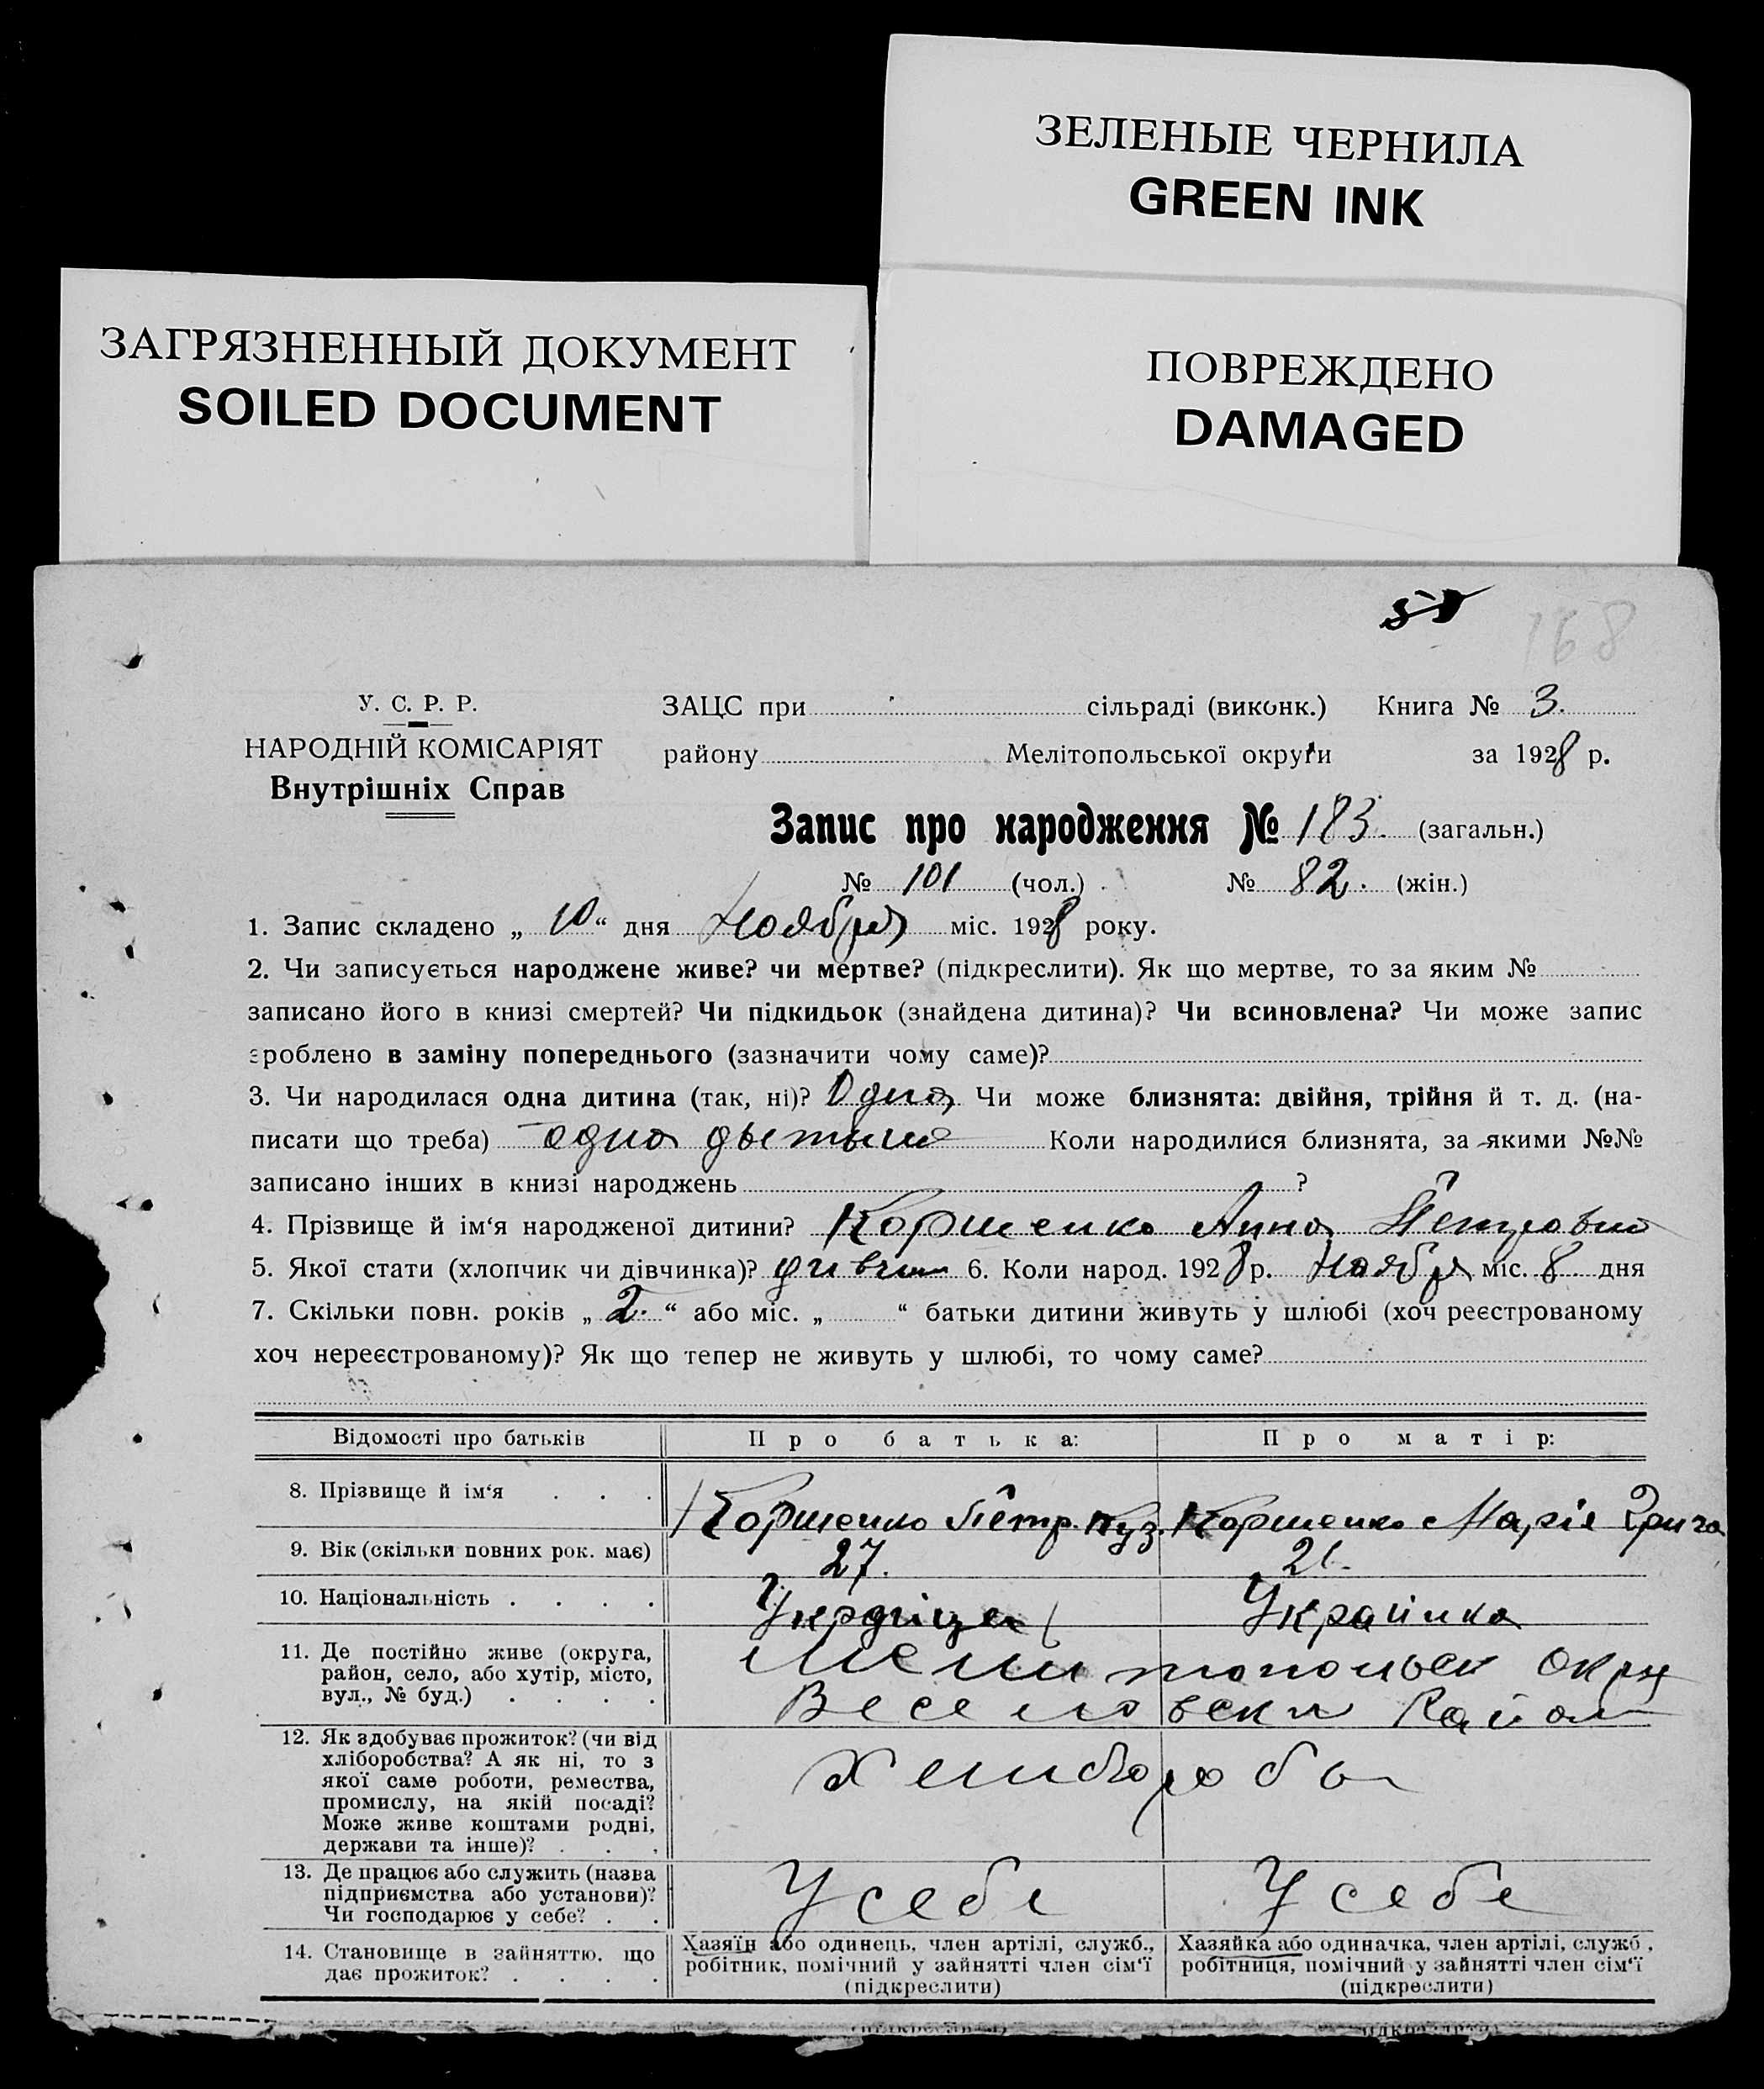 ЗЕЛЕНЫЕ ЧЕРНИЛА
GREEN INK
ЗАГРЯЗНЕННЫЙ ДОКУМЕНТ
SOILED DOCUMENT
ПОВРЕЖДЕНО
DAMAGED
168
У. С. Р. Р.
НАРОДНІЙ КОМІСАРІЯТ
Внутрішніх Справ
ЗАЦС при сільраді (виконк.) Книга № 3.
району Мелітопольської округи за 1928 р.
Запис про народження № 183. (загальн.)
№ 101 (чол.) № 82. (жін.)
1. Запис складено „ 10 “ дня Ноября міс. 1928 року.
2. Чи записується народжене живе? чи мертве? (підкреслити). Як що мертве, то за яким №
записано його в книзі смертей? Чи підкидьок (знайдена дитина)? Чи всиновлена? Чи може запис
зроблено в заміну попереднього (зазначити чому саме)?
3. Чи народилася одна дитина (так, ні)? Одна Чи може близнята: двійня, трійня й т. д. (на-
писати що треба) одна дытына Коли народилися близнята, за якими №№
записано інших в книзі народжень ?
4. Прізвище й ім‘я народженої дитини? Коршенко Анна Петровна
5. Якої стати (хлопчик чи дівчинка)? 6. Коли народ. 1928 р. Ноября міс. 8 дня
7. Скільки повн. років „ 2. “ або міс. „ “ батьки дитини живуть у шлюбі (хоч реєстрованому
хоч нереєстрованому)? Як що тепер не живуть у шлюбі, то чому саме?
Відомості про батьків Про батька: Про матір:
8. Прізвище й ім‘я . . . Коршенко Петр Куз. Коршенко Марія Грига
9. Вік (скільки повних рок. має) 27. 21.
10. Національність . . . . Українка
11. Де постійно живе (округа,
район, село, або хутір, місто,
вул., № буд.) . . . .
Мелитопольск Окру
Веселовски Район
12. Як здобуває прожиток? (чи від
хліборобства? А як ні, то з
якої саме роботи, ремества,
промислу, на якій посаді?
Може живе коштами родні,
держави та інше)? . . .
13. Де працює або служить (назва
підприємства або установи)?
Чи господарює у себе? . .
У себе У себе
14. Становище в зайняттю, що
дає прожиток? . . . .
Хазяїн або одинець, член артілі, служб.,
робітник, помічний у зайнятті член сім‘ї
(підкреслити)
Хазяйка або одиначка, член артілі, служб.,
робітниця, помічний у зайнятті член сім‘ї
(підкреслити)